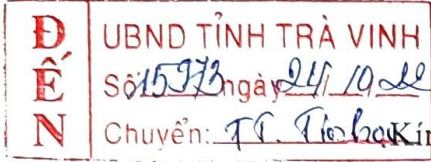 ĐẾN
UBND TỈNH TRÀ VINH
Số 15973 ngày 24/10/22
Chuyển: TT. Tin học Kín